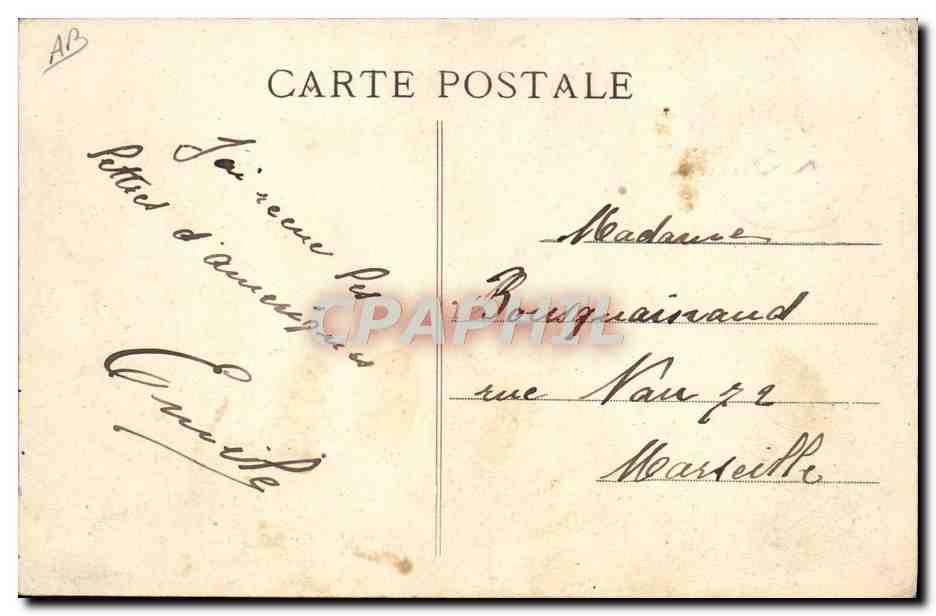 AB
CARTE POSTALE
J'ai recue les
lettres d'ameriques
Emile
Madame
Bousquainaud
rue Nau 72
Marseille
CPAPHIL